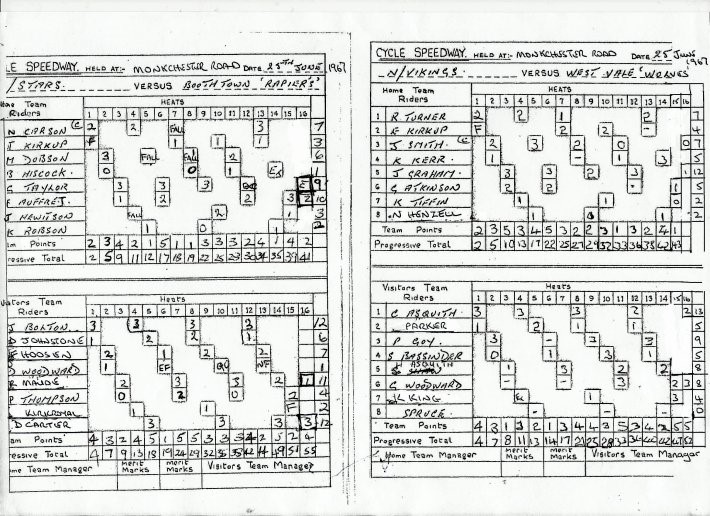 LE SPEEDWAY. HELD AT:- MONKCHESTER ROAD DATE 25TH JUNE 1967
/STARS. VERSUS BOOTHTOWN 'RAPIERS'
Home Team Riders HEATS
1 2 3 4 5 6 7 8 9 10 11 12 13 14 15 16
N CARSON (C 2 2 FALL 3 7
J KIRKUP F 1 1 1 3
M DOBSON 3 FALL FALL 2 6
B HISCOCK. 0 0 1 1
G TAYLOR 3 3 3 9
AUFFRET. 1 3 2 2 2 10
J HEWITSON FALL 2 1 3
K ROBSON 1 0 2
am Points 2 3 4 2 1 5 1 1 3 3 3 2 4 1 4 2
ressive Total 2 5 9 11 12 17 18 19 22 25 28 30 34 35 39 41
Visitors Team Riders Heats
1 2 3 4 5 6 7 8 9 10 11 12 13 14 15 16
J BOLTON 3 3 3 2 12
D JOHNSTONE 1 2 2 1 6
HOOSEN 2 1 2 2 7
D WOODWARD 1 EF NF
MAUDE 2 3 3 11
P THOMPSON 0 2 0 F 4
KIRKROYAL 1 2
D CARTIER 3 3 3 3 12
am Points 4 3 2 4 5 1 5 5 3 3 3 4 2 5 2 4
ressive Total 4 7 9 13 18 19 24 29 32 35 38 42 44 49 51 55
ome Team Manager Merit Marks Merit Marks Visitors Team Manager
CYCLE SPEEDWAY. HELD AT:- MONKCHESTER ROAD DATE 25 JUNE 1967
N/VIKINGS. VERSUS WEST VALE 'WOLVES'
Home Team Riders HEATS
1 2 3 4 5 6 7 8 9 10 11 12 13 14 15 16
1 R TURNER 2 2 2 1 7
2 E KIRKUP F 2 2 - 4
3 J SMITH (C 2 3 2 0 0 7
4 K KERR. 3 1 - 1 5
5 J GRAHAM. 3 2 3 3 12
6 G ATKINSON 2 2 1 5
7 K TIFFIN 1 1 0 2
8 N HENZELL 1 0 1 2
Team Points 2 3 5 3 4 5 3 2 3 1 3 2 4 1
Progressive Total 2 5 10 13 17 22 25 27 29 32 33 36 38 42 43
Visitors Team Riders Heats
1 2 3 4 5 6 7 8 9 10 11 12 13 14 15 16
1 C ASQUITH 3 3 3 2 2 13
2 PARKER 1 2 1 1 5
3 P GOY 3 - 3 3
4 S BASSINDER 0 0 3 1 5
5 S ASQUITH 2 3 - 3 8
6 G WOODWARD - - 1 2 3 8
7 K KING 1 1
8 SPRUCE. - - - 0
Team Points 4 3 1 3 2 1 3 4 4 3 5 3 4 2 5 5
Progressive Total 4 7 8 11 13 14 17 21
Home Team Manager Merit Marks Merit Marks Visitors Team Manager